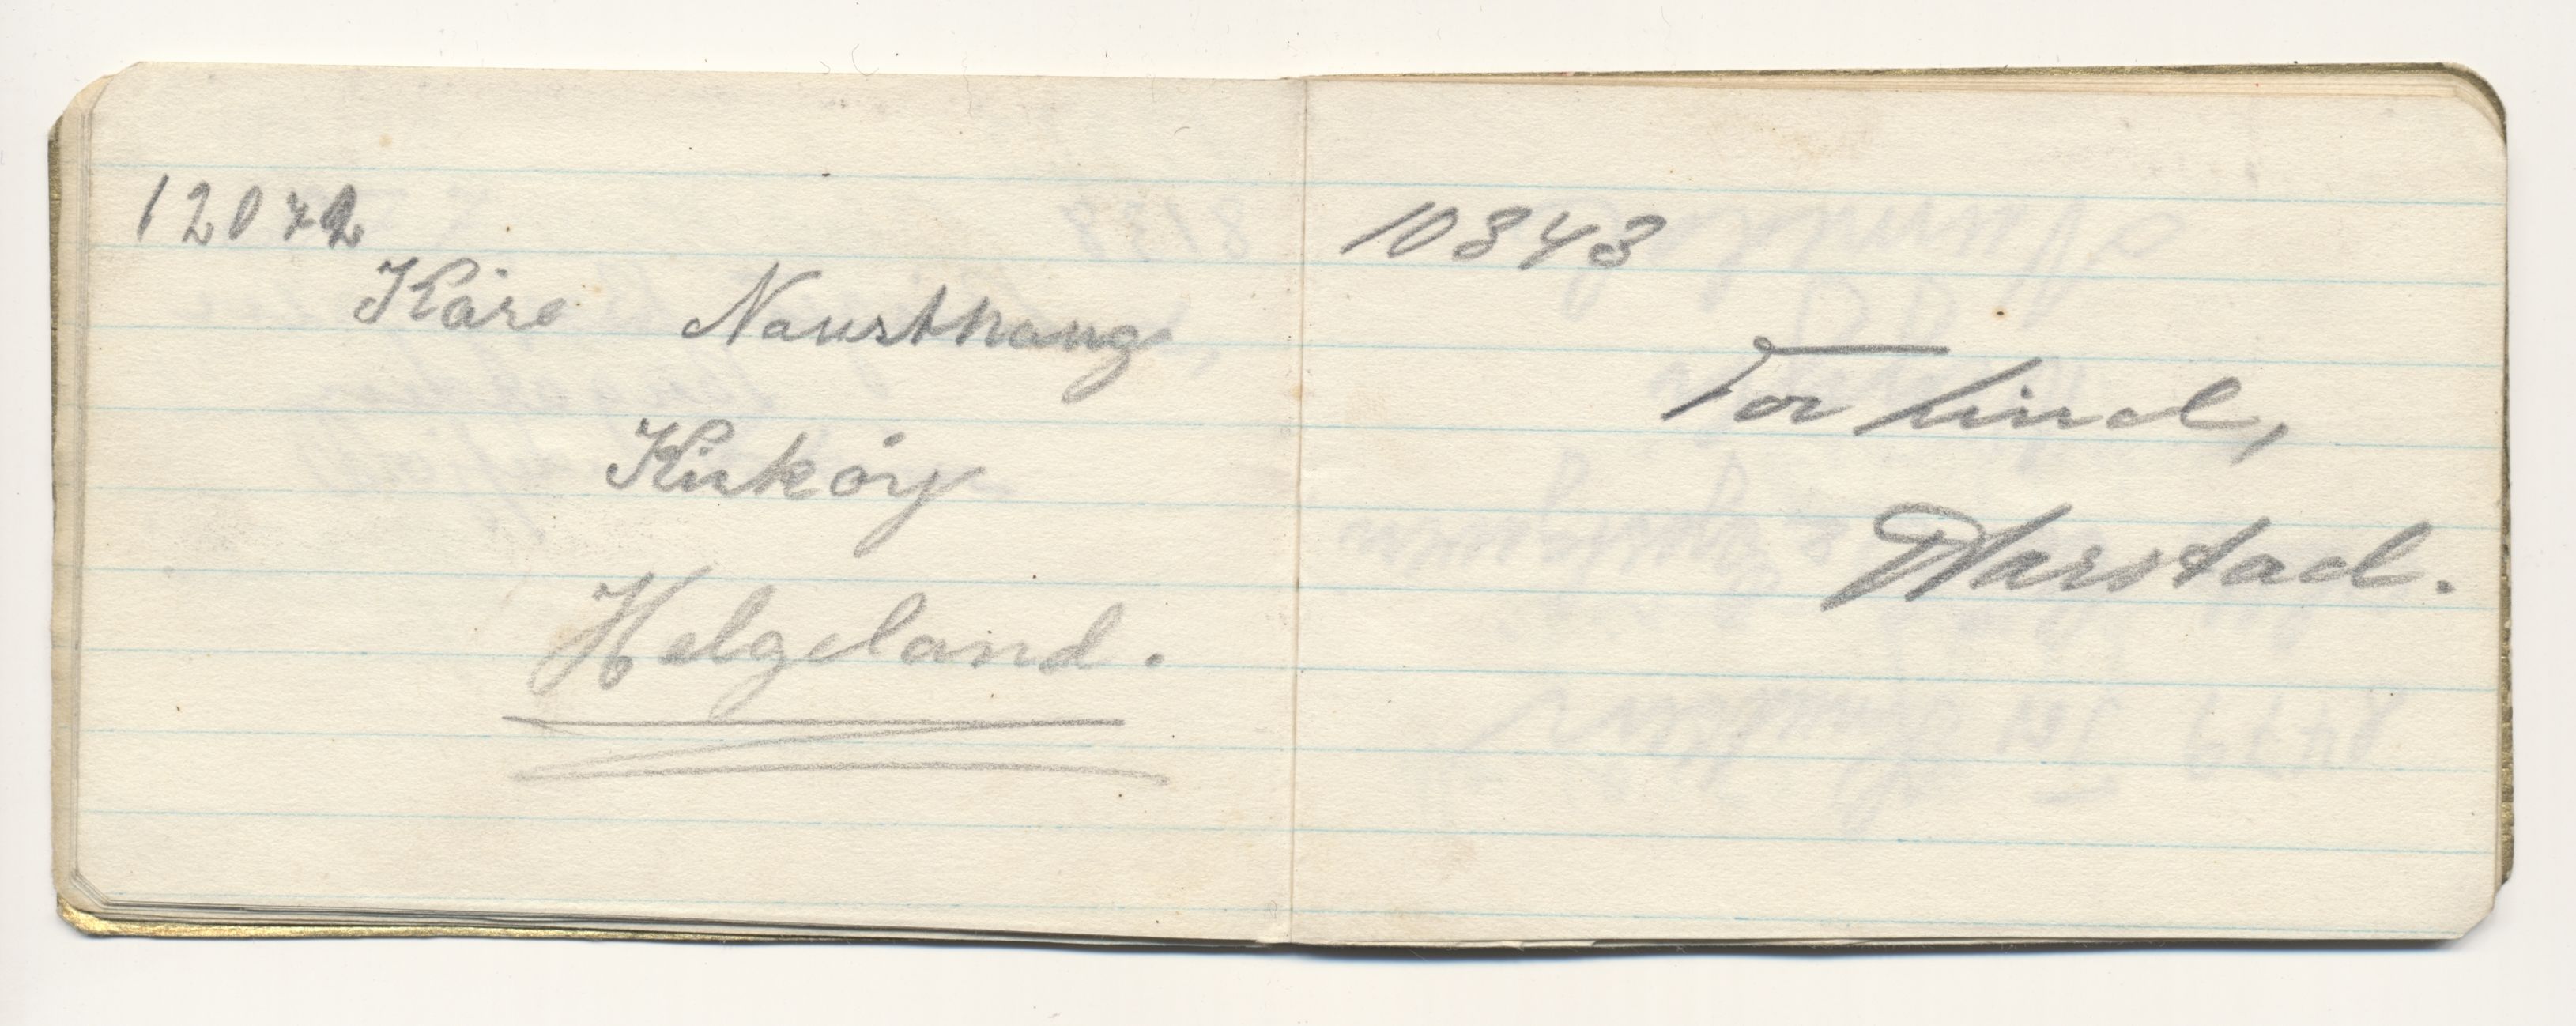 12072
Kåre Nausthaug,
Kirkøy
Helgeland.
10343
Tor Lind,
Harstad.